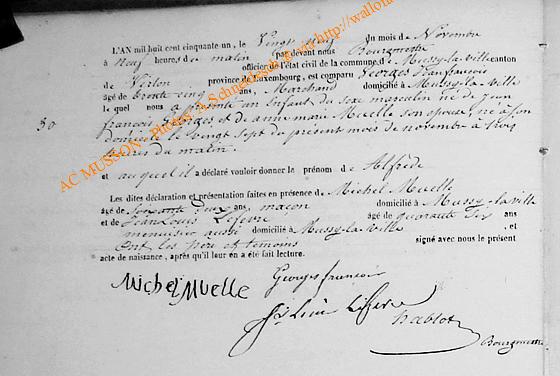 L'AN mil huit cent cinquante-un, le Vingt neuf du mois de Novembre
à Neuf heures de matin par devant nous Bourgmestre
officier de l'état civil de la commune de Mussy-la-ville canton
de Virton province de Luxembourg, est comparu Georges Jeanfrancois
âgé de trente cinq ans, Marchand domicilié à Mussy-la-ville
le quel nous a présenté un Enfant du sexe masculin né de Jean
30
françois Georges et de anne marie Muelle son epouse, né à son
domicile le vingt sept du présent mois de novembre à trois
heures du matin.
et auquel il a déclaré vouloir donner le prénom de Alfrède
Les dites déclaration et présentation faites en présence de Michel Muelle
âgé de soixante deux ans, maçon domicilié à Mussy-la-ville
et de Jean Louis Lefevre âgé de quarante six ans
menuisier aussi domicilié à Mussy-la-ville, et
ont les père et témoins signé avec nous le présent
acte de naissance, après qu'il leur en a été fait lecture.
Michel Muelle Georges francois
Lefevre
hablot
Bourgmestre
AC MUSSON - Photos A. Schmedesch & via http://wallo